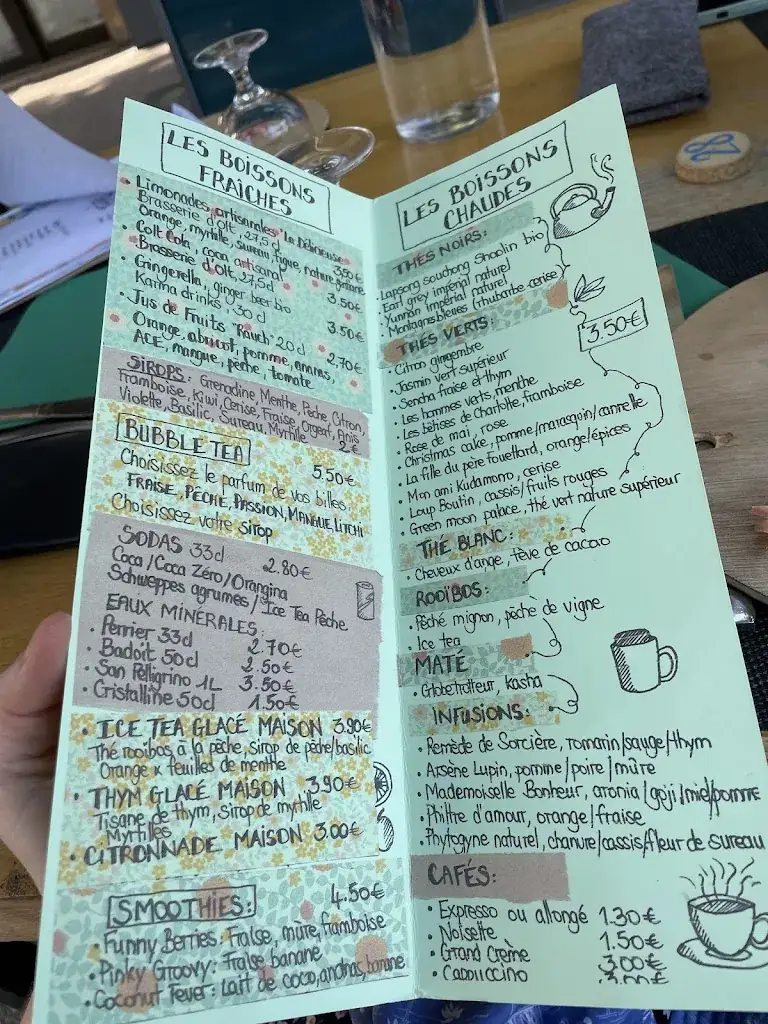 LES BOISSONS
FRAÎCHES
• Limonades artisanales "La Délicieuse"
Brasserie d'Olt, 27,5 cl 3.50€
Orange, myrtille, sureau, figue, nature
• Colt Cola, coca artisanal
Brasserie d'Olt, 27,5cl 3.50€
• Gingerella, ginger beer bio
Karma drinks, 30 cl 3.50€
• Jus de Fruits "Rauch" 20 cl 2.70€
Orange, abricot, pomme, ananas,
ACE, mangue, pêche, tomate
SIROPS: Grenadine, Menthe, Pêche, Citron,
Framboise, Kiwi, Cerise, Fraise, Orgeat, Anis
Violette, Basilic, Sureau, Myrtille 2€
BUBBLE TEA 5.50€
Choisissez le parfum de vos billes:
FRAISE, PÊCHE, PASSION, MANGUE, LITCHI
Choisissez votre sirop
SODAS 33cl 2.80€
Coca/Coca Zéro/Orangina
Schweppes agrumes/Ice Tea Pêche
EAUX MINÉRALES:
• Perrier 33cl 2.70€
• Badoit 50cl 2.50€
• San Pelligrino 1L 3.50€
• Cristalline 50cl 1.50€
• ICE TEA GLACÉ MAISON 3.90€
Thé rooibos à la pêche, Sirop de pêche/basilic
Orange x feuilles de menthe
• THYM GLACÉ MAISON 3.90€
Tisane de thym, Sirop de myrtille
Myrtilles
• CITRONNADE MAISON 3.00€
SMOOTHIES: 4.50€
• Funny Berries: Fraise, mûre, framboise
• Pinky Groovy: Fraise banane
• Coconut Fever: Lait de coco, ananas, banane
LES BOISSONS
CHAUDES
THÉS NOIRS:
• Lapsang souchong Shaolin bio
• Earl grey impérial naturel
• Yunnan impérial naturel
• Montagnes bleues (rhubarbe cerise)
3.50€
THÉS VERTS:
• Citron gingembre
• Jasmin vert supérieur
• Sencha fraise et thym
• Les hommes verts, menthe
• Les bêtises de Charlotte, framboise
• Rose de mai, rose
• Christmas cake, pomme/marasquin/cannelle
• La fille du père Fouettard, orange/épices
• Mon ami Kudamono, cerise
• Loup Boutin, cassis/fruits rouges
• Green moon palace, thé vert nature supérieur
THÉ BLANC:
• Cheveux d'ange, fève de cacao
ROOÏBOS:
• Pêché mignon, pêche de vigne
• Ice tea
MATÉ
• Globetrotteur, kasha
INFUSIONS:
• Remède de Sorcière, romarin/sauge/thym
• Arsène Lupin, pomme/poire/mûre
• Mademoiselle Bonheur, aronia/goji/miel/pomme
• Philtre d'amour, orange/fraise
• Phytogyne naturel, chanvre/cassis/fleur de sureau
CAFÉS:
• Expresso ou allongé 1.30€
• Noisette 1.50€
• Grand Crème 3.00€
• Cappuccino 3.00€